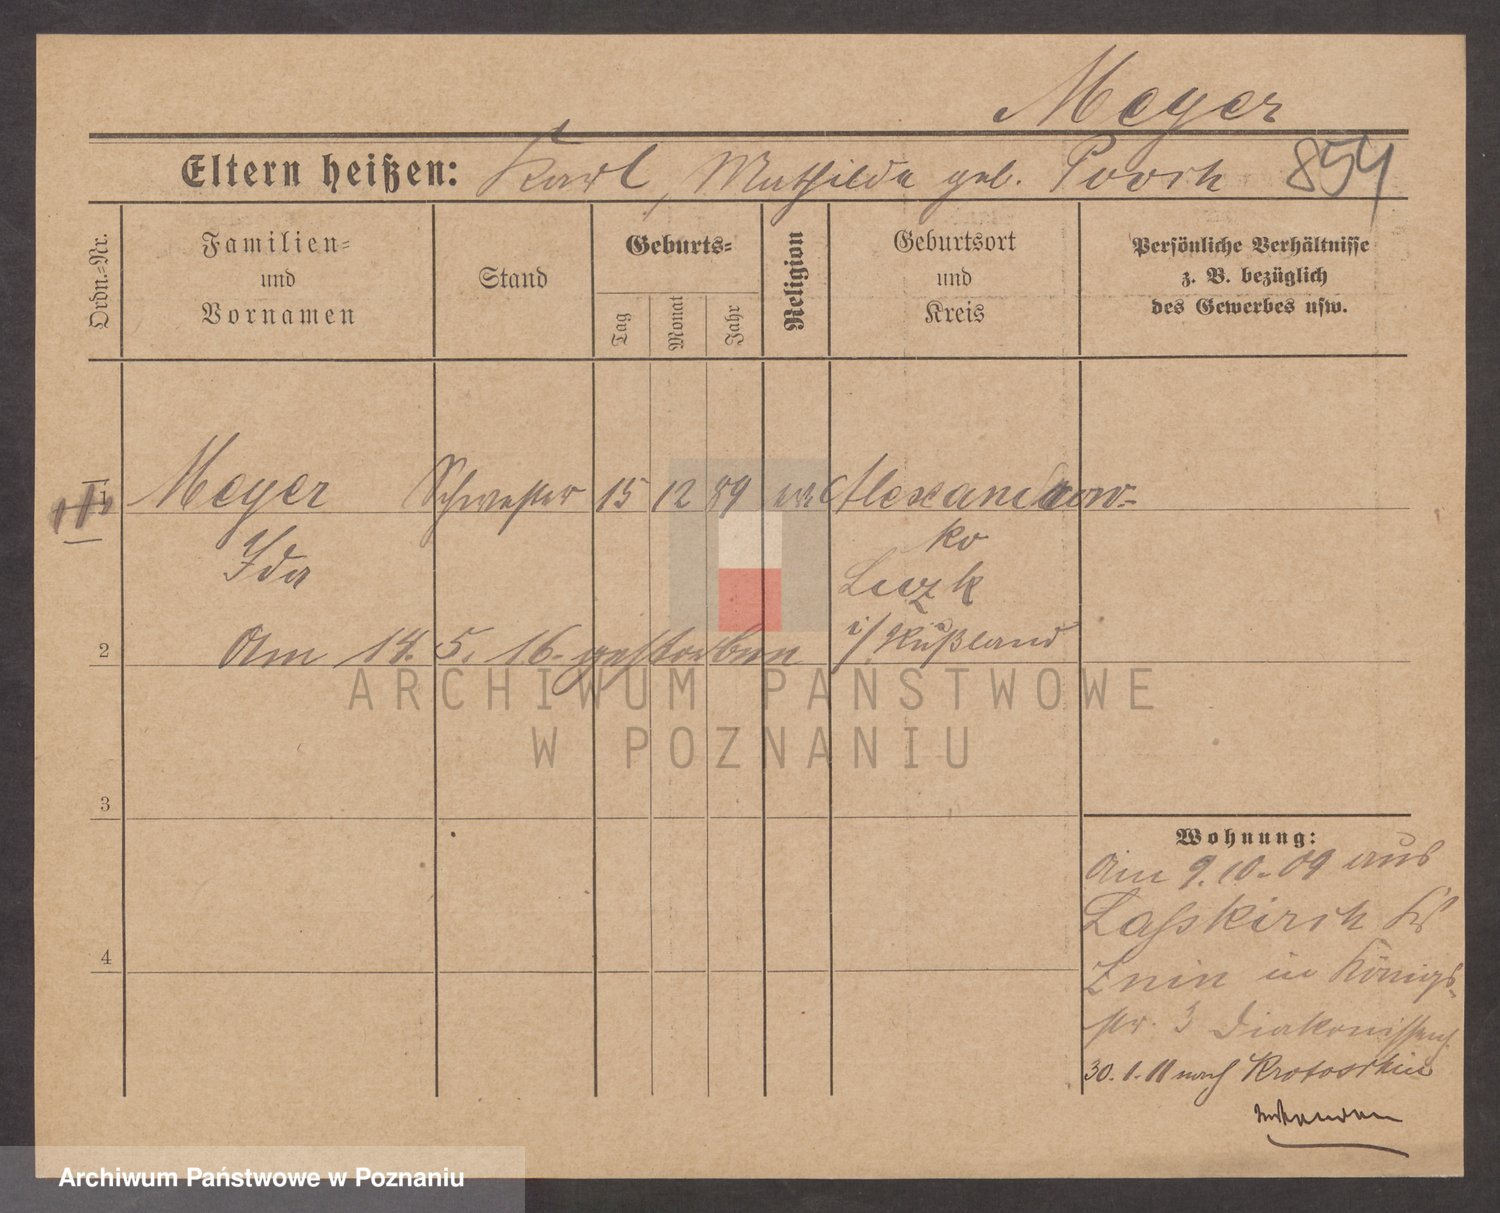 Meyer
Eltern heißen: Karl, Mathilde geb. Poosch 854
Ordn.=Nr.
Familien=
und
Vornamen
Stand
Geburts=
Tag
Monat
Jahr
Religion
Geburtsort
und
Kreis
Persönliche Verhältnisse
z. B. bezüglich
des Gewerbes usw.
1 Meyer Schwester 15 12 89 Alexandrow=
ko
Ida
Luzk
2 Am 14. 5. 16. gestorben i/Rußland
3
Wohnung:
Am 9.10.09 aus
Lasskirch Krs
4 Znin in Königs-
str. 3
30.1.11 nach Krotoschin
ARCHIWUM PAŃSTWOWE
W POZNANIU
Archiwum Państwowe w Poznaniu